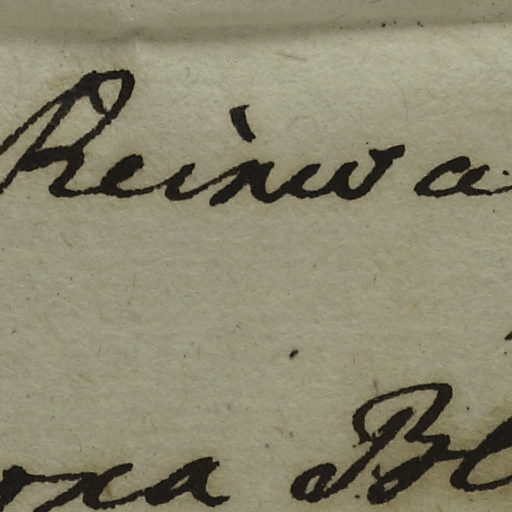 Reinwa
oxa Bl